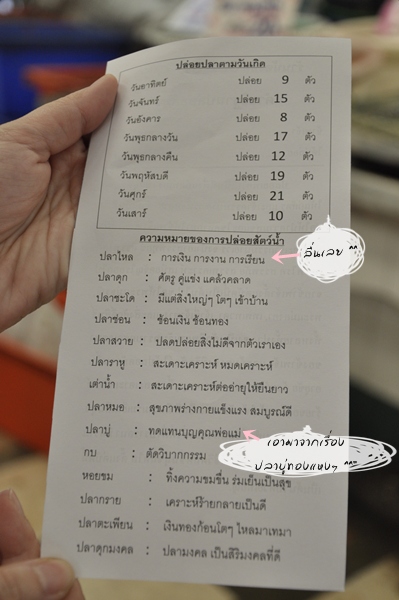 ปล่อยปลาตามวันเกิด
วันอาทิตย์ ปล่อย 9 ตัว
วันจันทร์ ปล่อย 15 ตัว
วันอังคาร ปล่อย 8 ตัว
วันพุธกลางวัน ปล่อย 17 ตัว
วันพุธกลางคืน ปล่อย 12 ตัว
วันพฤหัสบดี ปล่อย 19 ตัว
วันศุกร์ ปล่อย 21 ตัว
วันเสาร์ ปล่อย 10 ตัว
ความหมายของการปล่อยสัตว์น้ำ
ปลาไหล : การเงิน การงาน การเรียน
ลื่นเลย ^^
ปลาดุก : ศัตรู คู่แข่ง แคล้วคลาด
ปลาชะโด : มีแต่สิ่งใหญ่ๆ โตๆ เข้าบ้าน
ปลาช่อน : ช้อนเงิน ช้อนทอง
ปลาสวาย : ปลดปล่อยสิ่งไม่ดีจากตัวเราเอง
ปลาราหู : สะเดาะเคราะห์ หมดเคราะห์
เต่าน้ำ : สะเดาะเคราะห์ต่ออายุให้ยืนยาว
ปลาหมอ : สุขภาพร่างกายแข็งแรง สมบูรณ์ดี
ปลาบู่ : ทดแทนบุญคุณพ่อแม่
เอามาจากเรื่อง
ปลาบู่ทองแหงๆ ^^
กบ : ตัดวิบากกรรม
หอยขม : ทิ้งความขมขื่น ร่มเย็นเป็นสุข
ปลากราย : เคราะห์ร้ายกลายเป็นดี
ปลาตะเพียน : เงินทองก้อนโตๆ ไหลมาเทมา
ปลาดุกมงคล : ปลามงคล เป็นสิริมงคลที่ดี